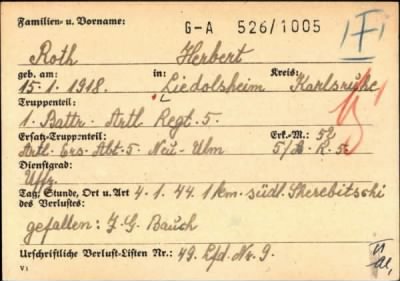 Familien- u. Vorname: G-A 526/1005
Roth Herbert
geb. am: in: Kreis:
15. 1. 1918. Liedolsheim Karlsruhe
Truppenteil:
1. Battr. Artl. Regt. 5.
Ersatz-Truppenteil: Erk.-M.: 52
Artl. Ers. Abt. 5 Neu-Ulm 5/A. R. 5.
Dienstgrad:
Uffz.
Tag, Stunde, Ort u. Art 4. 1. 44. 1 km. südl. Skerebitschi
des Verlustes:
gefallen: J. G. Bauch
Urschriftliche Verlust-Listen Nr.: 49. Lfd. Nr. 9.
V 1